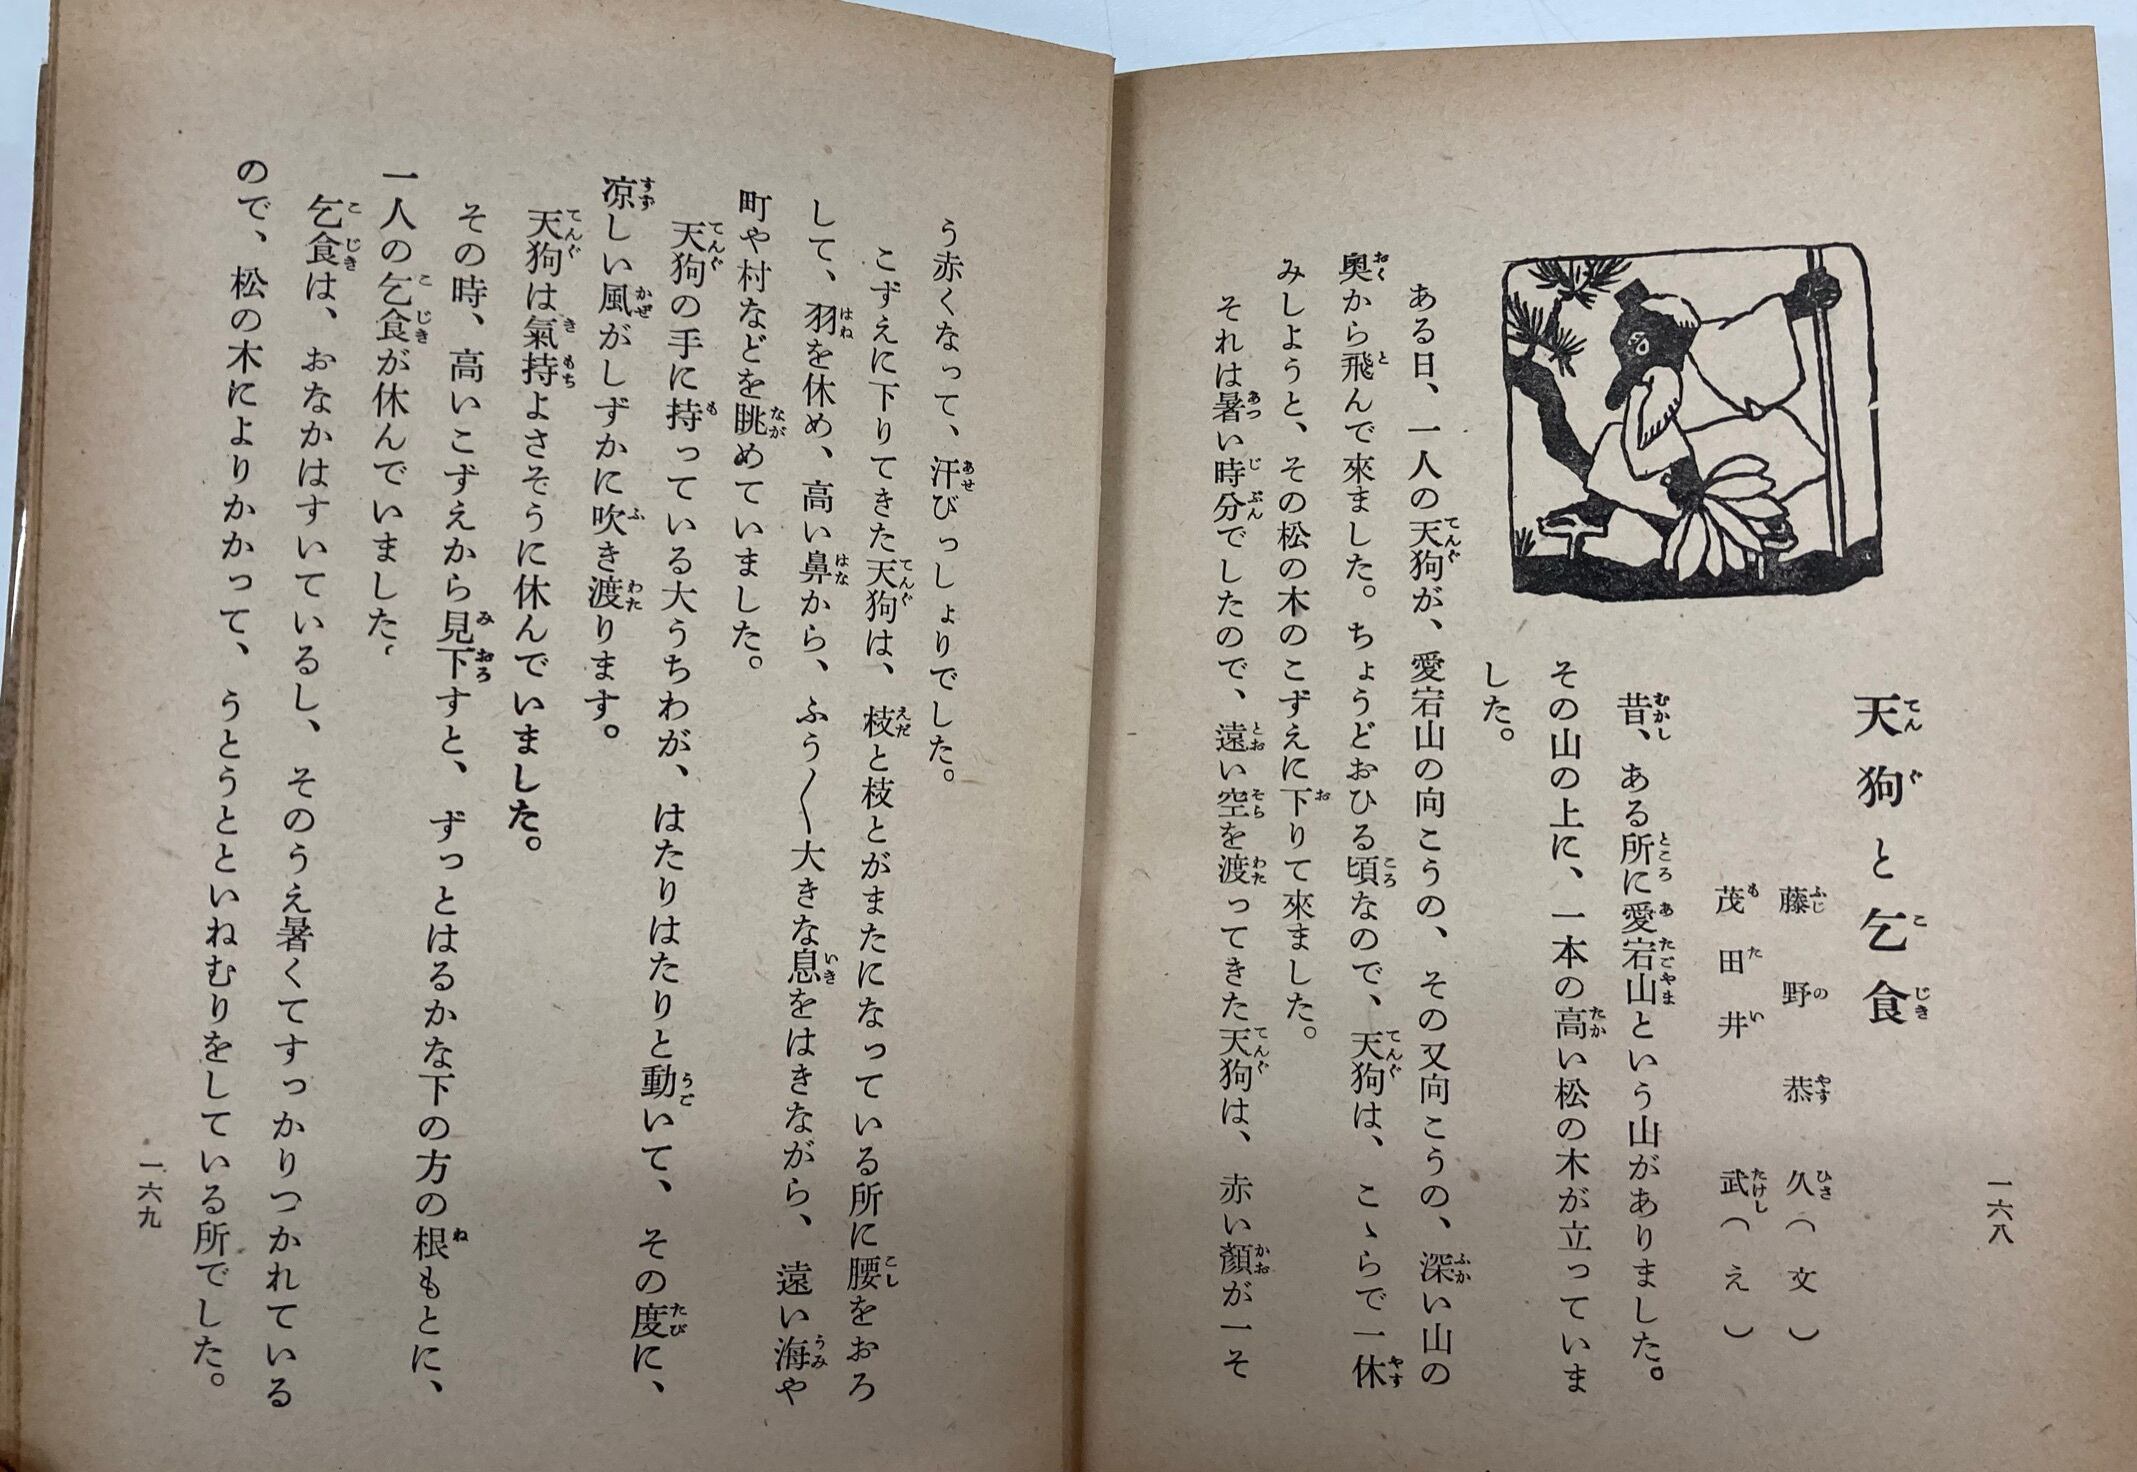 一六八
天狗と乞食
藤野恭久（文）
茂田井武（え）
昔、ある所に愛宕山という山がありました。
その山の上に、一本の高い松の木が立っていま
した。
ある日、一人の天狗が、愛宕山の向こうの、その又向こうの、深い山の
奧から飛んで來ました。ちょうどおひる頃なので、天狗は、こゝらで一休
みしようと、その松の木のこずえに下りて來ました。
それは暑い時分でしたので、遠い空を渡ってきた天狗は、赤い顏が一そ
う赤くなって、汗びっしょりでした。
こずえに下りてきた天狗は、枝と枝とがまたになっている所に腰をおろ
して、羽を休め、高い鼻から、ふう〳〵大きな息をはきながら、遠い海や
町や村などを眺めていました。
天狗の手に持っている大うちわが、はたりはたりと動いて、その度に、
凉しい風がしずかに吹き渡ります。
天狗は氣持よさそうに休んでいました。
その時、高いこずえから見下すと、ずっとはるかな下の方の根もとに、
一人の乞食が休んでいました。
乞食は、おなかはすいているし、そのうえ暑くてすっかりつかれている
ので、松の木によりかかって、うとうとといねむりをしている所でした。
一六九